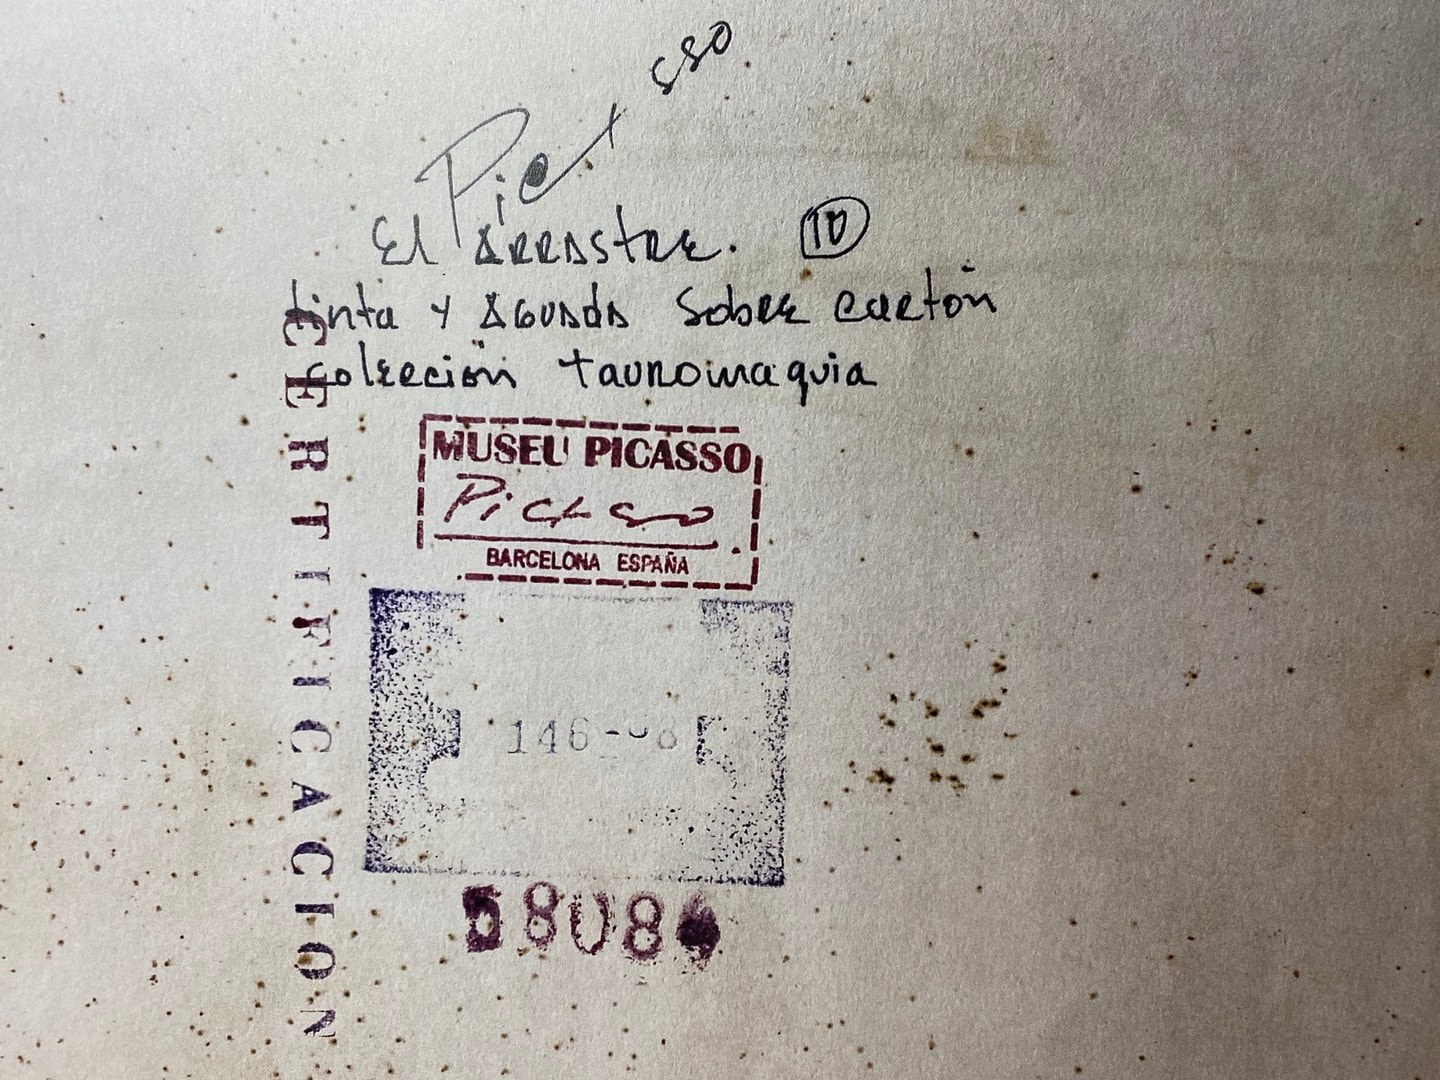 Picasso
El ARRAStRE. 10
tinta y AGUAdA SobRE cartón
colección tauromaquia
MUSEU PICASSO
Picasso
BARCELONA ESPAÑA
CERTIFICACION